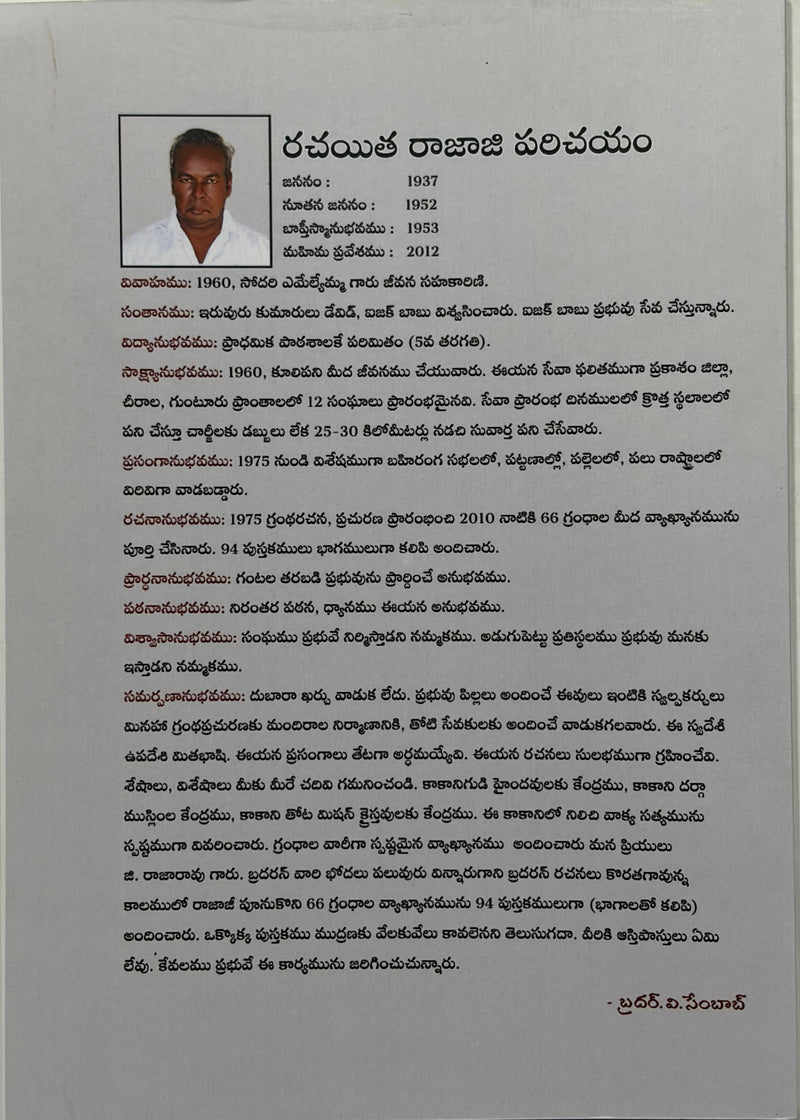 రచయిత రాజాజి పరిచయం
జననం : 1937
నూతన జననం : 1952
బాప్తీస్మానుభవము : 1953
మహిమ ప్రవేశము : 2012
వివాహము: 1960, సోదరి ఎమేల్యేమ్మ గారు జీవన సహకారిణి.
సంతానము: ఇరువురు కుమారులు డేవిడ్, ఐజక్ బాబు విశ్వసించారు. ఐజక్ బాబు ప్రభువు సేవ చేస్తున్నారు.
విద్యానుభవము: ప్రాధమిక పాఠశాలకే పరిమితం (5వ తరగతి).
సాక్ష్యానుభవము: 1960, కూలిపని మీద జీవనము చేయువారు. ఈయన సేవా ఫలితముగా ప్రకాశం జిల్లా,
చీరాల, గుంటూరు ప్రాంతాలలో 12 సంఘాలు ప్రారంభమైనవి. సేవా ప్రారంభ దినములలో క్రొత్త స్థలాలలో
పని చేస్తూ చార్జీలకు డబ్బులు లేక 25-30 కిలోమీటర్లు నడచి సువార్త పని చేసేవారు.
ప్రసంగానుభవము: 1975 నుండి విశేషముగా బహిరంగ సభలలో, పట్టణాల్లో, పల్లెలలో, పలు రాష్ట్రాలలో
విరివిగా వాడబడ్డారు.
రచనానుభవము: 1975 గ్రంథరచన, ప్రచురణ ప్రారంభించి 2010 నాటికి 66 గ్రంధాల మీద వ్యాఖ్యానమును
పూర్తి చేసినారు. 94 పుస్తకములు భాగములుగా కలిపి అందిచారు.
ప్రార్ధనానుభవము: గంటల తరబడి ప్రభువును ప్రార్దించే అనుభవము.
పఠనానుభవము: నిరంతర పఠన, ధ్యానము ఈయన అనుభవము.
విశ్వాసానుభవము: సంఘము ప్రభువే నిర్మిస్తాడని నమ్మకము. అడుగుపెట్టు ప్రతిస్థలము ప్రభువు మనకు
ఇస్తాడని నమ్మకము.
సమర్పణానుభవము: దుబారా ఖర్చు వాడుక లేదు. ప్రభువు పిల్లలు అందించే ఈవులు ఇంటికి స్వల్పకర్చులు
మినహా గ్రంథప్రచురణకు మందిరాల నిర్మాణానికి, తోటి సేవకులకు అందించే వాడుకగలవారు. ఈ స్వదేశీ
ఉపదేశి మితభాషి. ఈయన ప్రసంగాలు తేటగా అర్ధమయ్యేవి. ఈయన రచనలు సులభముగా గ్రహించేవి.
శేషాలు, విశేషాలు మీకు మీరే చదివి గమనించండి. కాకానిగుడి హైందవులకు కేంద్రము, కాకాని దర్గా
ముస్లింల కేంద్రము, కాకాని తోట మిషన్ క్రైస్తవులకు కేంద్రము. ఈ కాకానిలో నిలిచి వాక్య సత్యమును
స్పష్టముగా వివరించారు. గ్రంధాల వారీగా స్పష్టమైన వ్యాఖ్యానము అందించారు మన ప్రియులు
జి. రాజారావు గారు. బ్రదరన్ వారి భోదలు పలువురు విన్నారుగాని బ్రదరన్ రచనలు కొరతగావున్న
కాలములో రాజాజీ పూనుకొని 66 గ్రంధాల వ్యాఖ్యానమును 94 పుస్తకములుగా (భాగాలతో కలిపి)
అందించారు. ఒక్కొక్క పుస్తకము ముద్రణకు వేలకువేలు కావలెనని తెలుసుగదా. వీరికి ఆస్తిపాస్తులు ఏమి
లేవు. కేవలము ప్రభువే ఈ కార్యమును జరిగించుచున్నారు.
- బ్రదర్.వి.సేంబాబ్